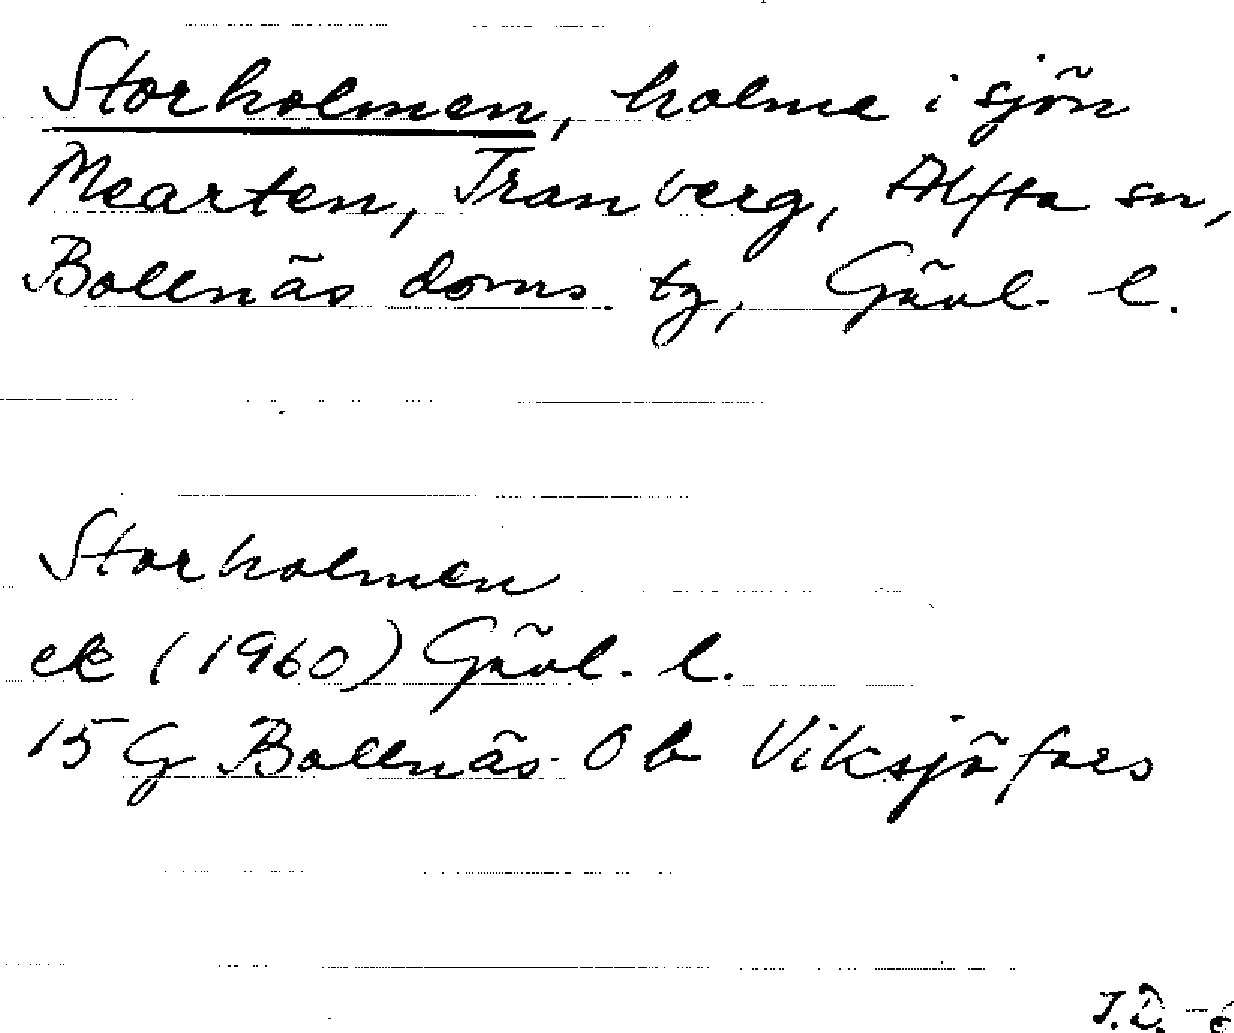 Storholmen, holme i sjön
Mearten, Tranberg, Alfta sn,
Bollnäs doms. tg, Gävl. l.
Storholmen
ek (1960) Gävl. l.
15 G Bollnäs Ob Viksjöfors
J.D. -6